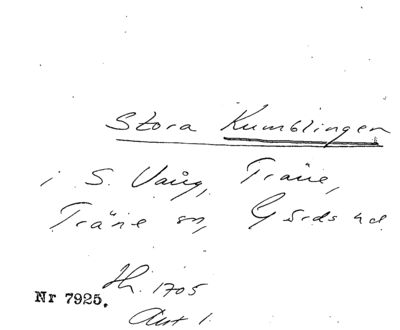 Stora Kumblingen
i S. Vång, Träne,
Träne sn, Gärds hd
Hi. 1705
Nr 7925.
Avt 1.